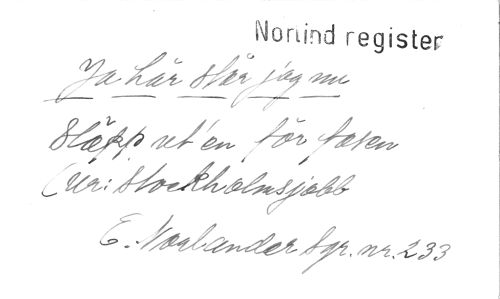 Norlind register
Ja här står jag nu
Släpp ut en för fasen
(ur: Stockholmsjobb
E. Norlander Sgr. nr. 233